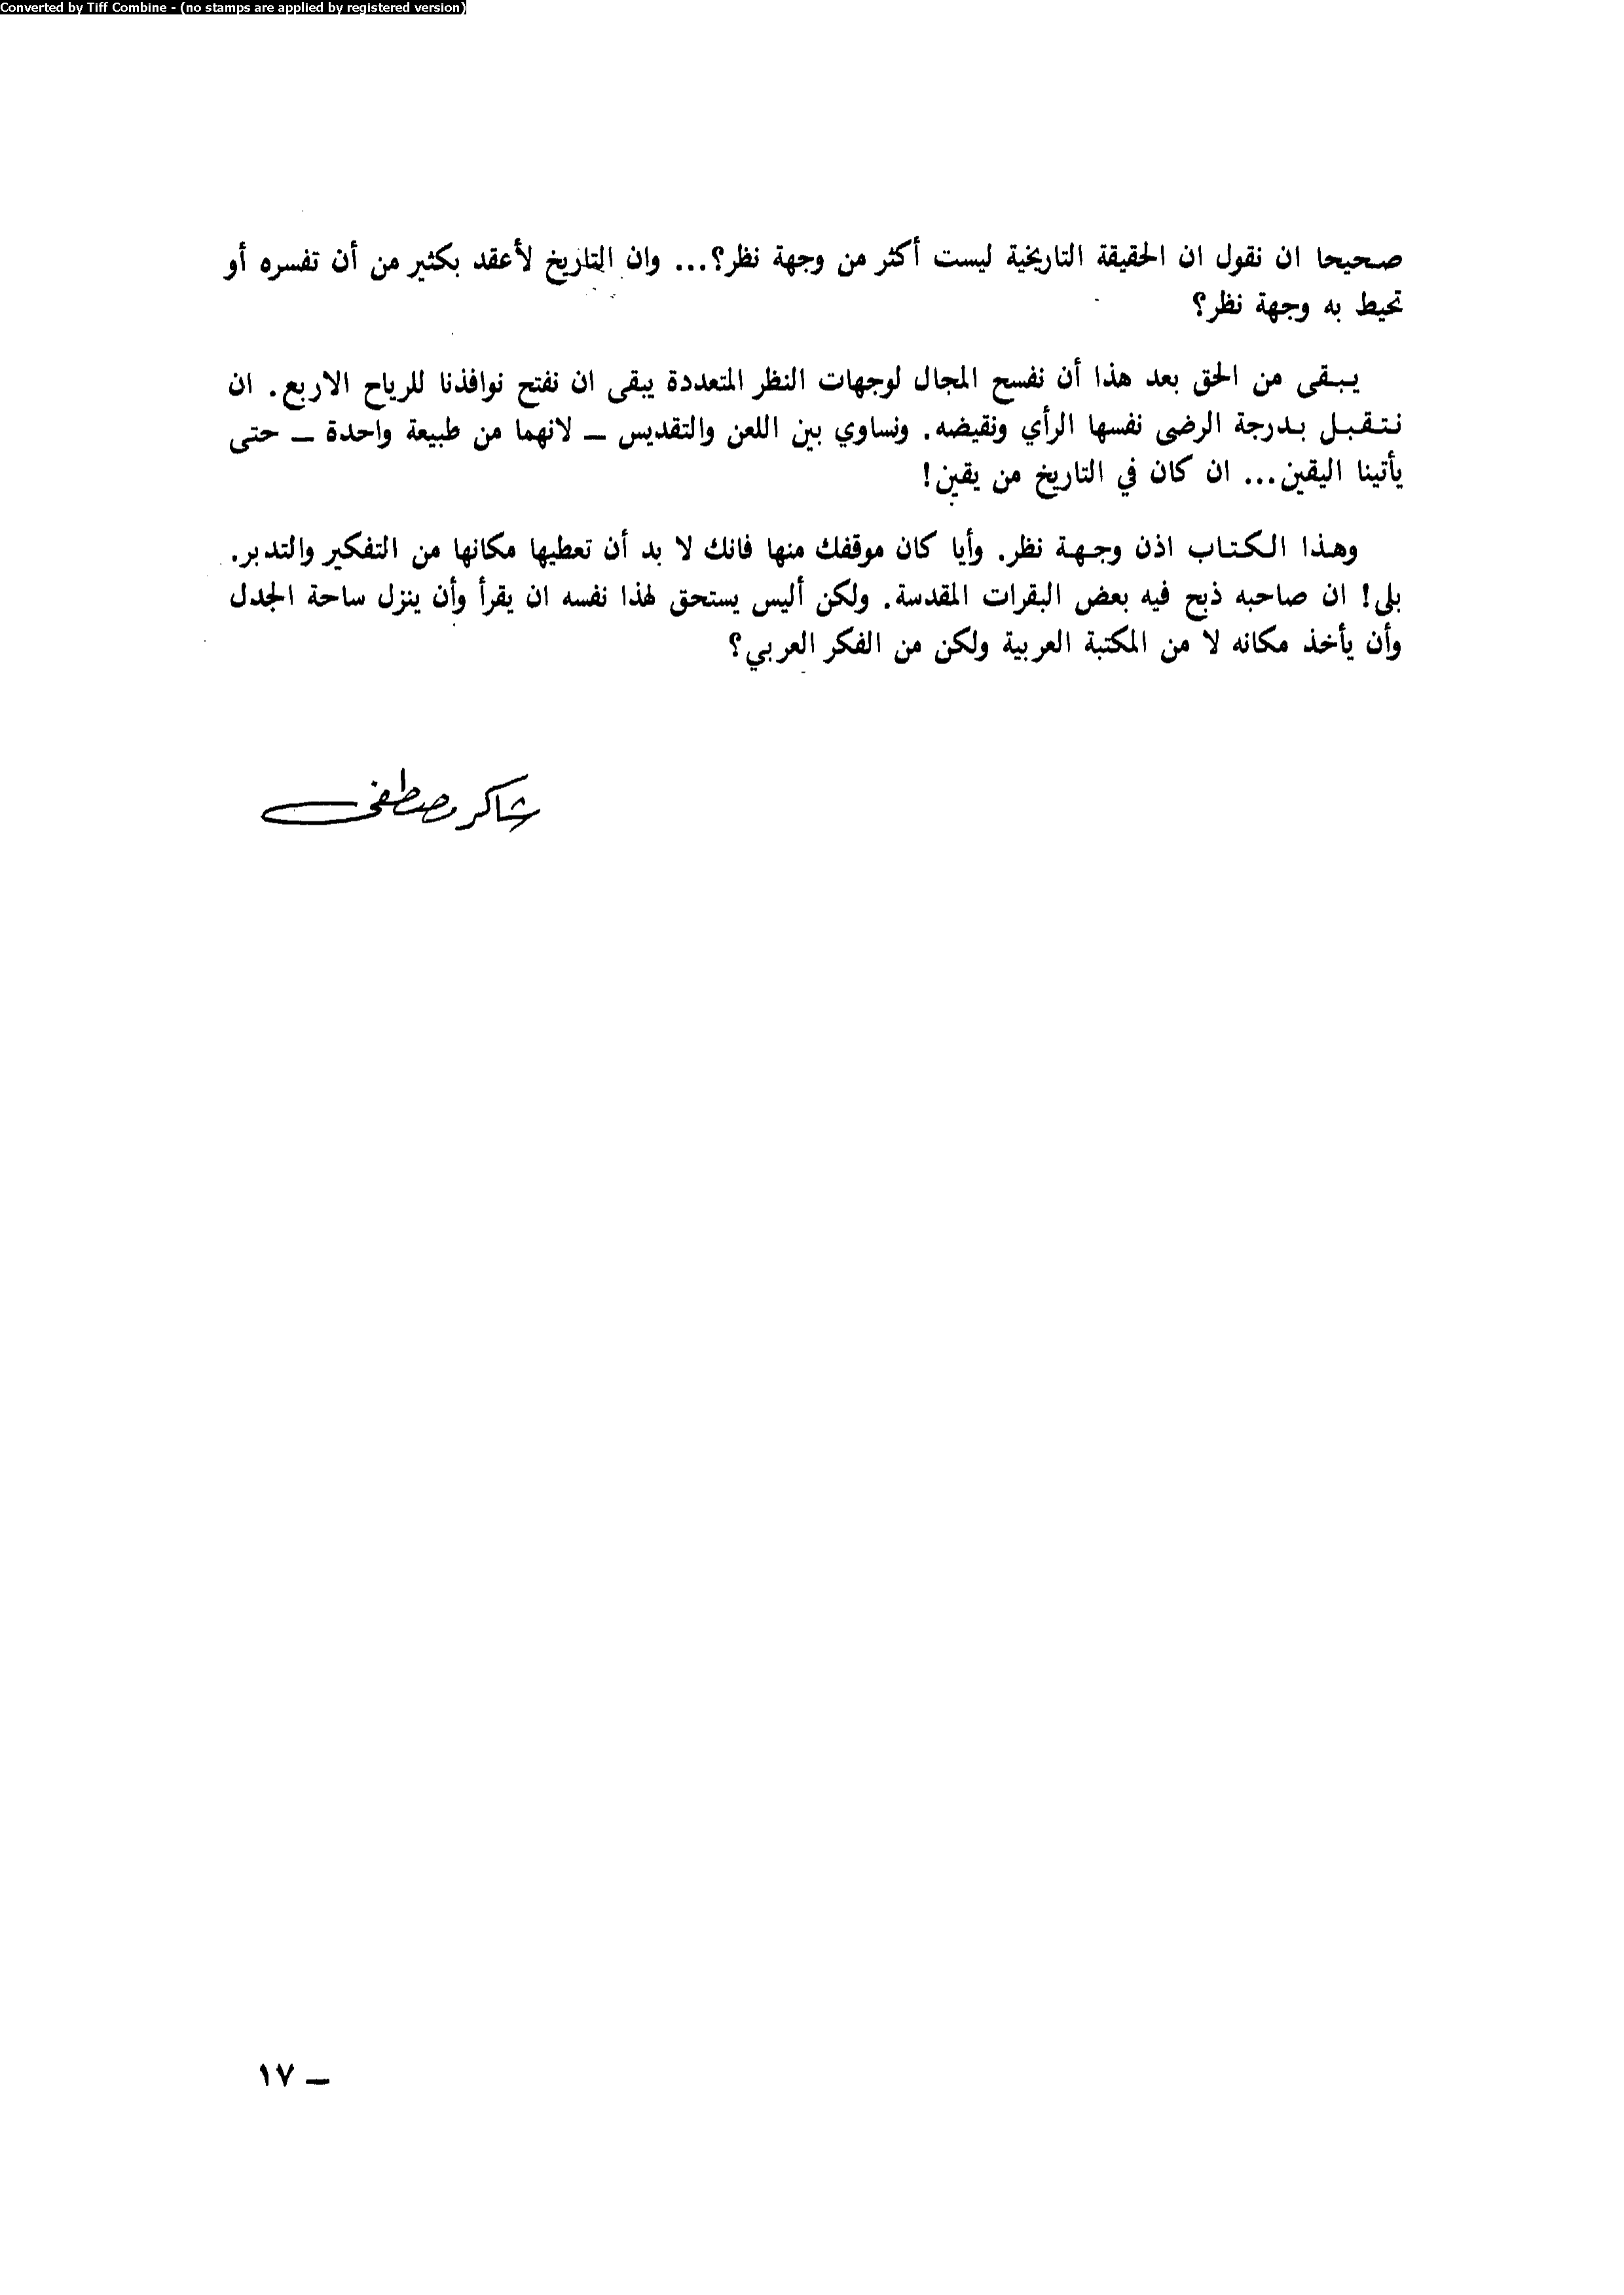 Converted by Tiff Combine - (no stamps are applied by registered version)
صحيحا ان نقول ان الحقيقة التاريخية ليست أكثر من وجهة نظر؟... وان التاريخ لأعقد بكثير من أن تفسره أو
تحيط به وجهة نظر؟
يبقى من الحق بعد هذا أن نفسح المجال لوجهات النظر المتعددة يبقى ان نفتح نوافذنا للرياح الاربع. ان
نتقبل بدرجة الرضى نفسها الرأي ونقيضه. ونساوي بين اللعن والتقديس – لانهما من طبيعة واحدة – حتى
يأتينا اليقين... ان كان في التاريخ من يقين!
وهذا الكتاب اذن وجهة نظر. وأيا كان موقفك منها فانك لا بد أن تعطيها مكانها من التفكير والتدبر.
بلى! ان صاحبه ذبح فيه بعض البقرات المقدسة. ولكن أليس يستحق لهذا نفسه ان يقرأ وأن ينزل ساحة الجدل
وأن يأخذ مكانه لا من المكتبة العربية ولكن من الفكر العربي؟
شاكر مصطفى
– ١٧